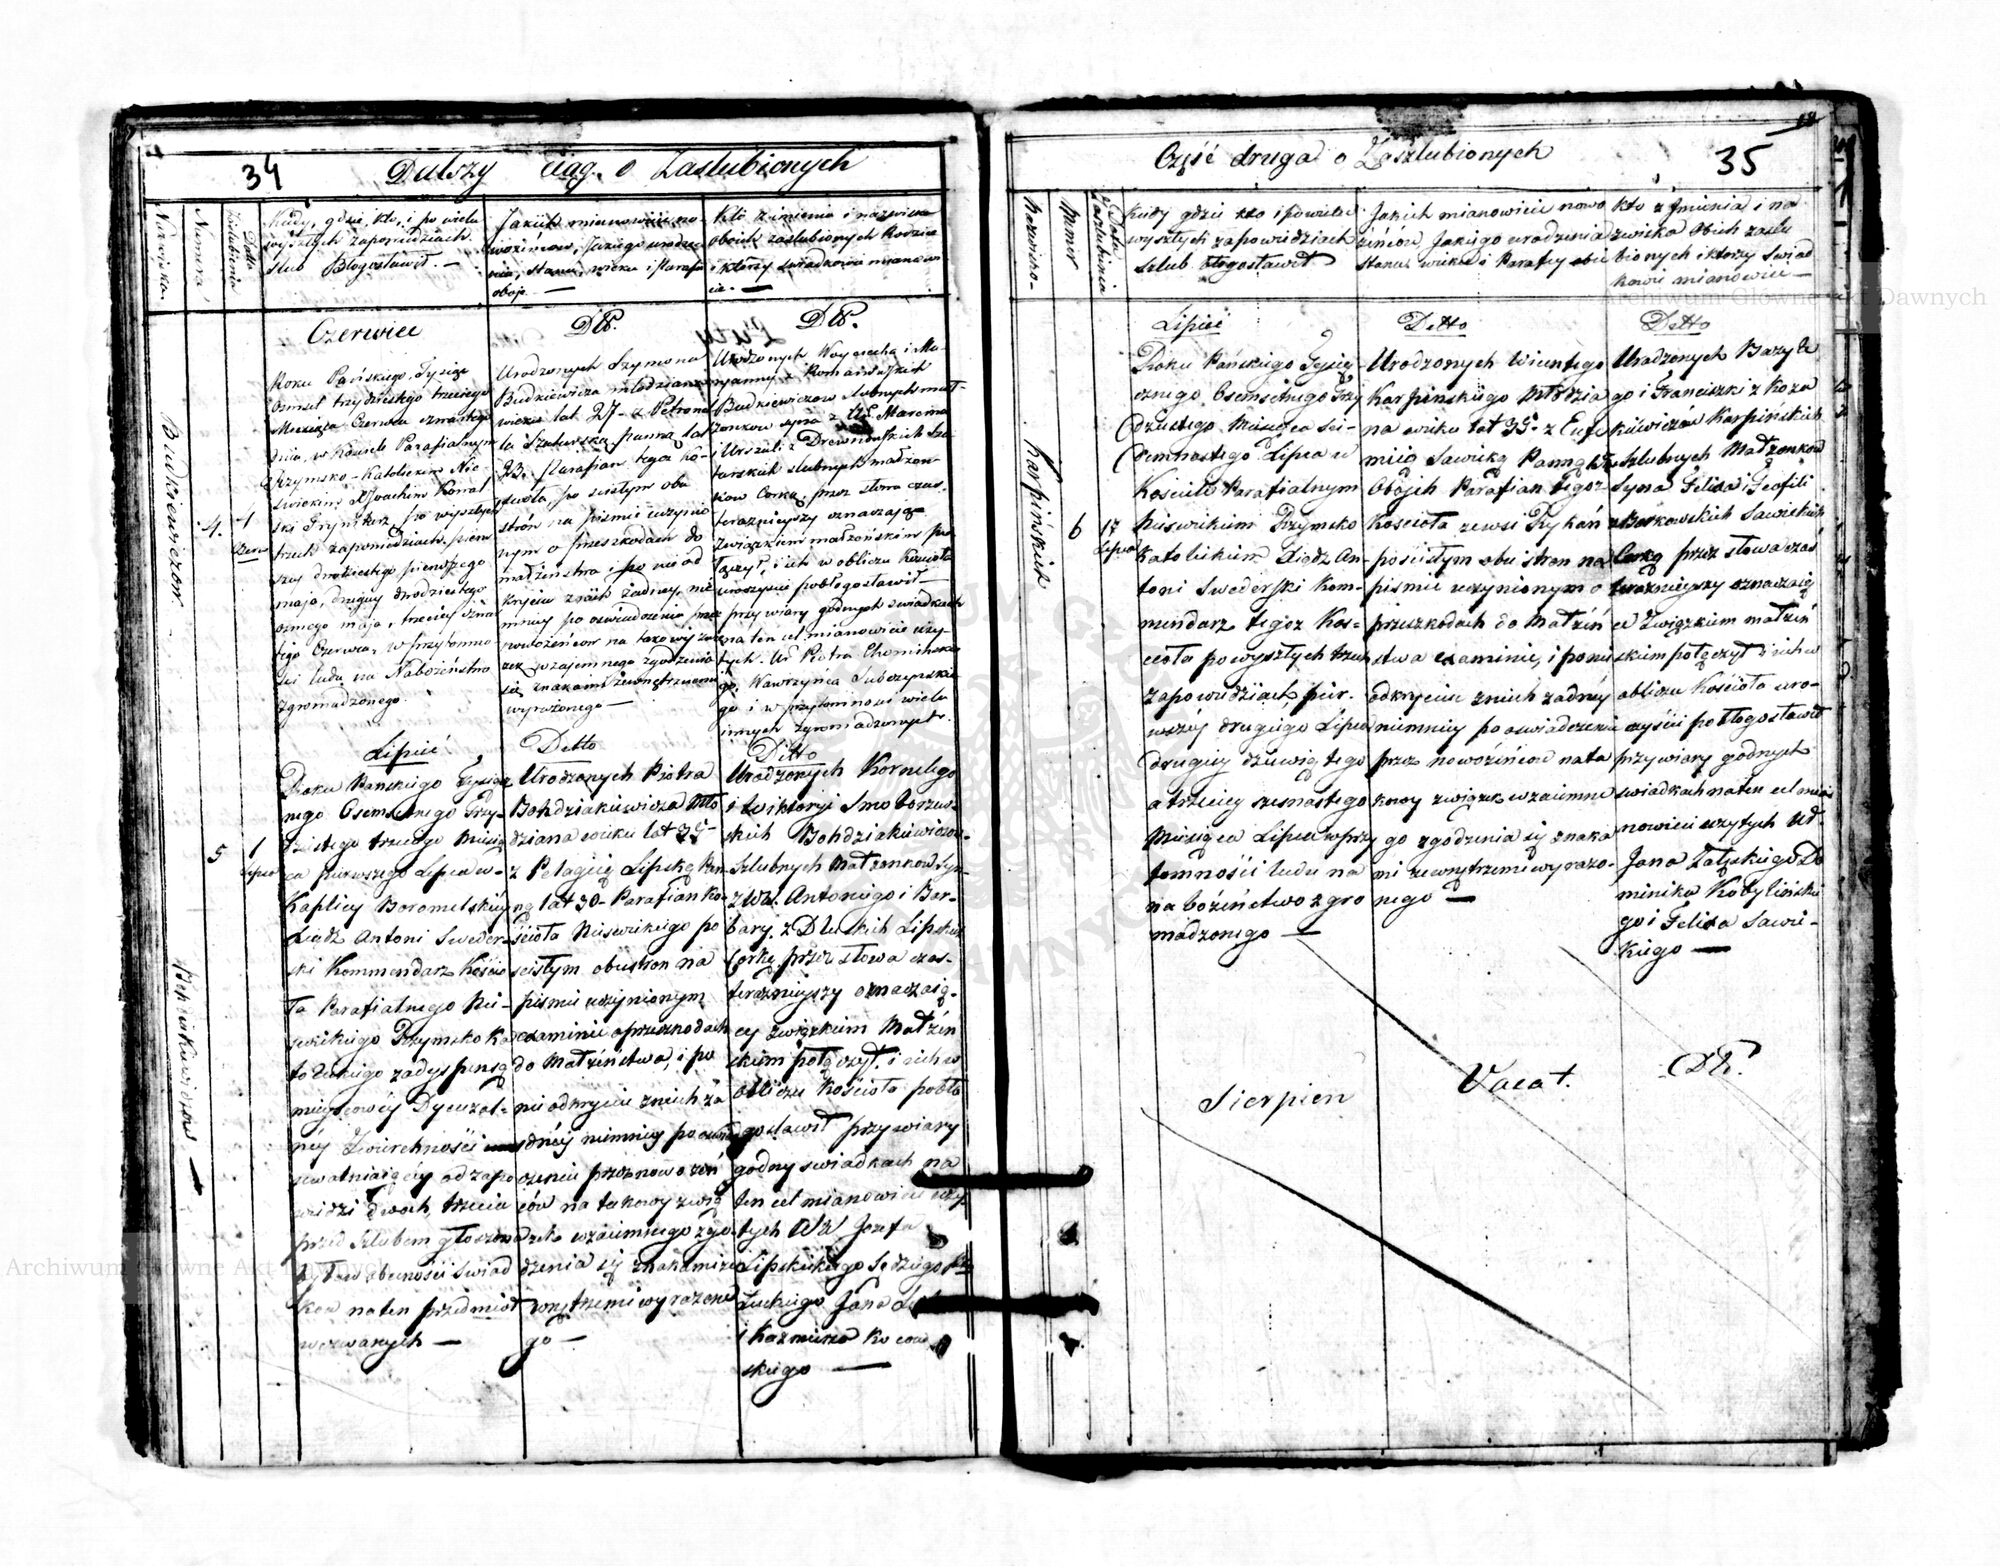 34 Dalszy ciąg o Zaslubionych
Nazwiska
Numera
Data Zaslubienia
Kiedy, gdzie, kto, i po wielu
wyszłych zapowiedziach
slub Błogosławił. —
Jakich mianowicie no-
wożeńcow, jakiego urodze
nia, stanu, wieku i Parafii
oboje —
Kto z imienia i nazwiska
oboich zaslubionych Rodzice
i ktorzy swiadkowie mianowi
cie. —
Budkiewiczow
4.
Czerwiec
Roku Pańskiego, Tysiąc
osmset trzydziestego trzeciego
Miesiąca Czerwca
dnia, w Kosciele Parafialnym
Rzymsko-Katolickim Nie
swickim X Joachim Kowal
ski po wyszłych
trzech zapowiedziach, pierw
szey dwodziestego pierwszego
maja, drugiey dwodziestego
osmego maja, trzeciey
tego Czerwca, w przytomno
sci ludu na Nabożeństwo
zgromadzonego.
Dtt.
Urodzonych Szymona
Budkiewicza młodziana
wieku lat 27 - z Petrone
lą pannę lat
23. Parafian tegoż Ko-
scioła, po scisłym obu
stron na pismie uczynio
nym o przeszkodach do
małżeństwa i po nie od
kryciu z nich żadney, nie
mniey po oswiadczeniu przez
nowożeńcow na takowy zwią
zek wzajemnego zgodzenia
się znakami zewnętrznemi
wyrażonego —
Dtt.
Urodzonych Woyciecha i Ma-
ryanny z Romanowskich
Budkiewiczow slubnych mał-
żonkow syna z Ur. Marcina
i Urszuli z Drewnowskich
slubnych małżon-
kow Corką, przez słowa czas
teraznieyszy oznaczające
Związkiem małżeńskim po
łączył, i ich w obliczu Kościoła
uroczyscie pobłogosławił —
przy wiary godnych swiadkach
na ten cel mianowicie uży-
tych. Ur Piotra
go, Wawrzynca
go i w przytomnosci wielu
innych zgromadzonych.
5
1
Lipca
Lipiec
Roku Panskiego Tysiącz
nego Osemsetnego Trzy-
dziestego trzeciego Miesią
ca pierwszego Lipca w-
Kaplicy Boromelskiey
Xiądz Antoni Sweder-
ski Kommendarz Koscio
ła Parafialnego Nie-
swickiego Rzymsko Ka
tolickiego za dyspensą
mieyscowey Dyecezal-
ney Zwierchności
uwalniaiącey od zapo
wiedzi dwoch, trzecia
przed szlubem głoszona
była w obecności swiad
kow na ten przedmiot
wezwanych —
Detto
Urodzonych Piotra
Bohdziakiewicza Mło
dziana wieku lat 35-
z Pelagiię Lipską Pan
ną lat 30- Parafian Ko-
ścioła Nieswickiego po
scisłym obustron na
pismie uczynionym
examinie o przeszkodach
do Małżeństwa, i po
nieodkryciu z nich ża
dney niemniey po oswiad
czeniu przez nowożeń
ców na takowy zwią
zek wzaiemnego zgo
dzenia się znakami ze
wnętrznemi wyrażone
go —
Ditto
Urodzonych Kornelego
i Wiktoryi Smoborzew-
skich Bohdziakiewiczow
Szlubnych Małżonkow Syn-
z Ur. Antoniego i Bar-
bary z Dluskich Lipskich
Corkę przez słowa czas-
teraznieyszy oznaczaią-
cy związkiem Małżeń
skim połączył, i ich w
obliczu Kościoła pobło
gosławił przy wiary
godny swiadkach na
ten cel mianowicie uży
tych Ur Jozefa
Lipskiego Sędziego
Łuckiego Jana
i Kazmierza
skiego —
Część druga o Zaszlubionych 35
Nazwisko-
Numer
Data Zaszlubienia
Kiedy gdzie kto i po wielu
wyszłych zapowiedziach
szlub błogosławił
Jakich mianowicie nowo
żeńców, Jakiego urodzenia
stanu wieku i Parafy obie
kto z Jmienia i na
zwiska Obich zaslu
bionych i ktorzy swiad
kowie mianowicie —
Karpińskich
6
17
Lipca
Lipiec
Roku Pańskiego Tysią
cznego Osemsetnego Trzy
dziestego Miesiąca Sie-
demnastego Lipca w
Kościele Parafialnym
Nieswickim Rzymsko
Katolickim Xiądz An-
toni Swederski Kom-
mendarz tegoz Kos-
cioła po wyszłych trzech
zapowiedziach, pier.
wszey drugiego Lipca
drugiey dziewiątego
a trzeciey szesnastego
Miesiąca Lipca w przy
tomności ludu na
nabożeństwo zgro
madzonego —
Detto
Urodzonych Wincętego
Karpinskiego Młodzia
na wieku lat 35- z Eufe
mią Sawicką Panną
Obojch Parafian tegoż
Kościoła ze wsi
po ścisłym obu stron na
pismie uczynionym o
przeszkodach do Małżeń
stwa examinie, i po nie
odkryciu z nich żadney
niemniey po oswiadczeniu
przez nowożeńców na ta
kowy związek wzaiemne
go zgodzenia się znaka
mi zewnętrznemi wyrażo-
nego —
Detto
Urodzonych Bazyle
go i Franciszki z Koza
kiewiczów Karpińskich
Szlubnych Małżonkow
Syna Felixa i Teofili
z Sawickich
Corką przez słowa czas
terazniejszy oznaczaią
ce Związkiem małżeń
skim połączył i ich w
obliczu Kościoła uro-
czyście pobłogosławił
przy wiary godnych
swiadkach na ten cel mia
nowicie użytych Ur.
Jana Załęskiego Do
minika Kobylińskie
go i Felixa Sawi-
ckiego —
Sierpień Vacat. Dtt.
Archiwum Główne Akt Dawnych
Archiwum Główne Akt Dawnych